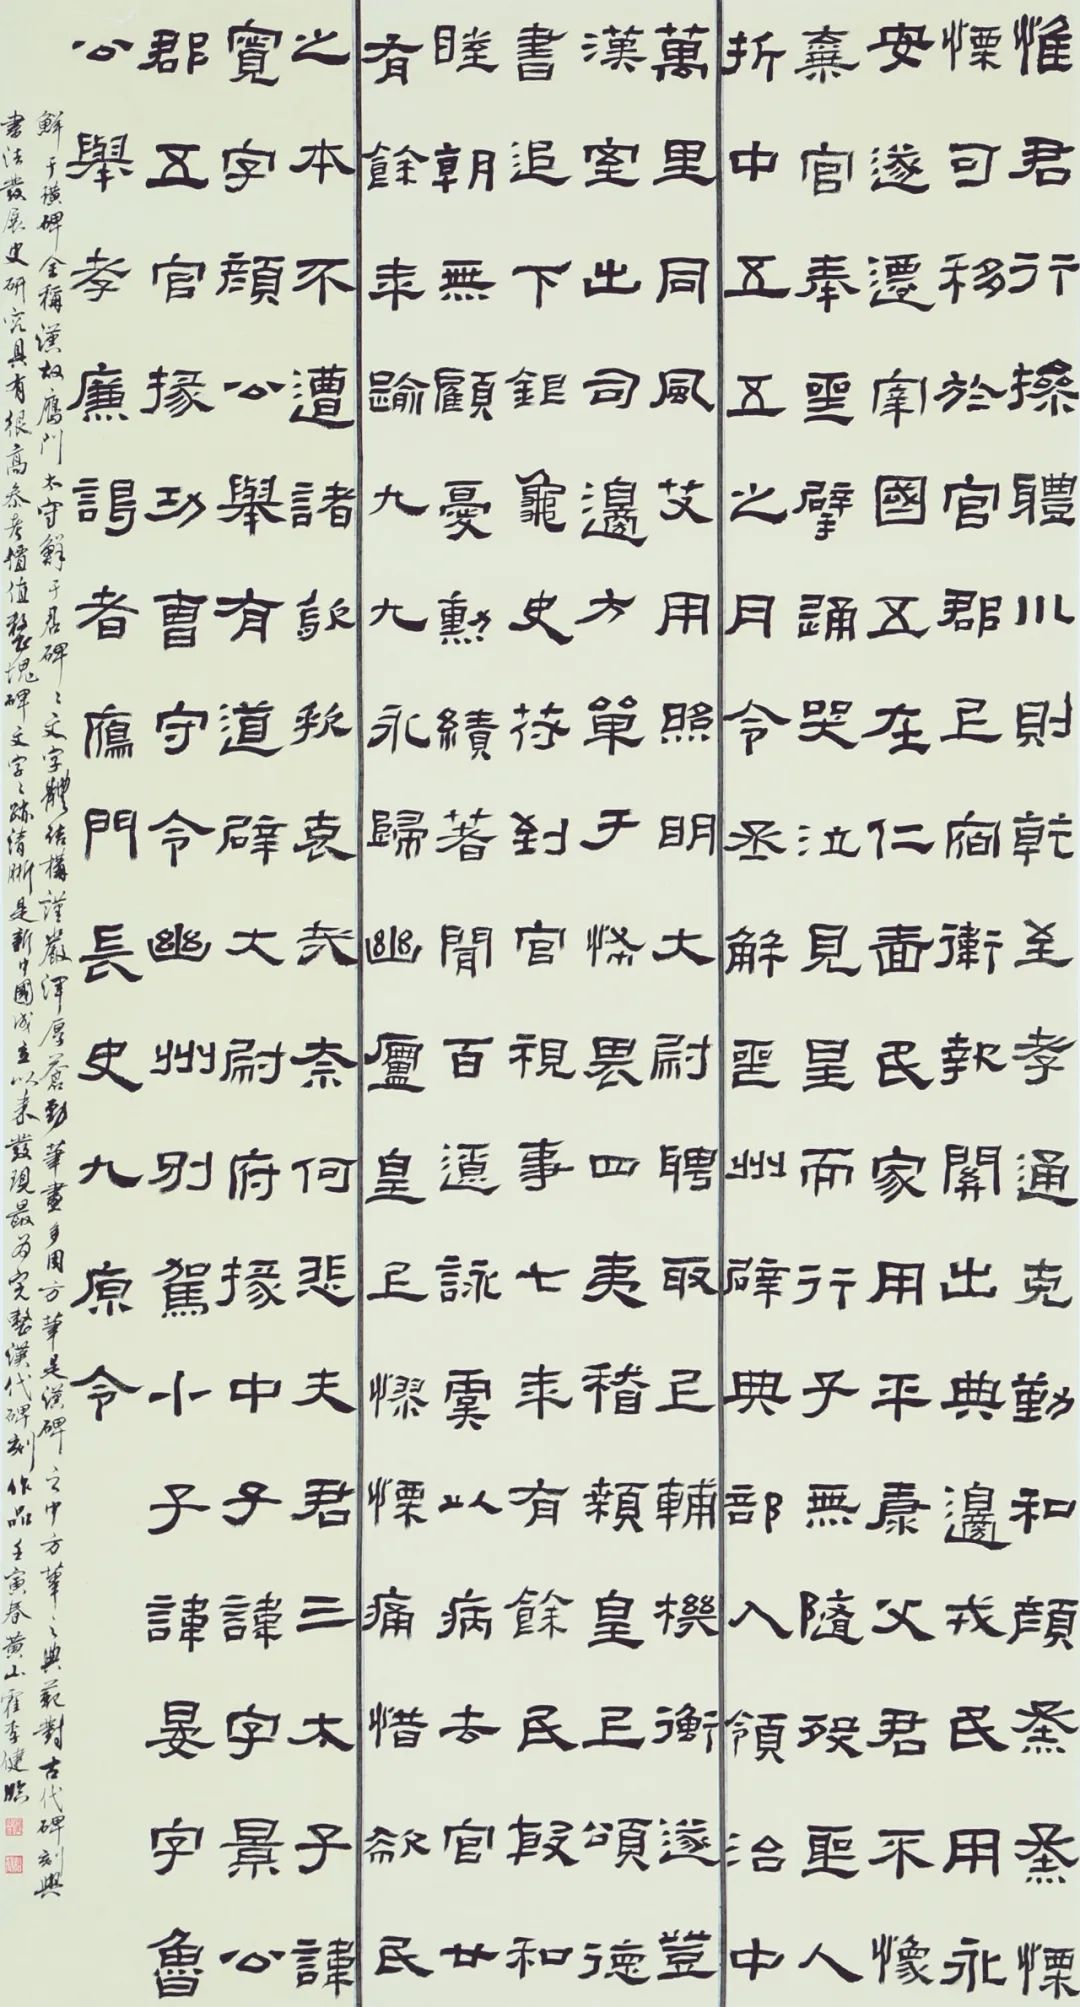 惟君行操體川則乾至孝通克勤和顏烝烝慄
慄可移於官郡上宿衛執關出典邊戎民用永
安遂遷宰國五在仁啚民家用平康父君不像
棄官奉喪擗踊哭泣見星而行子無隨歿聖人
折中五五之月令丞解喪州辟典部入領治中
萬里同風艾用照明大尉聘取上輔機衡遂登
漢室出司邊方單于怖畏四夷稽顙皇上頌德
書追下銀龜史符到官視事七年有餘民殷和
睦朝無顧憂勳績著聞百遼詠虞以病去官廿
有餘年踰九九永歸幽廬皇上憀慄痛惜欷民
之本不遭諸歔欷哀哉奈何悲夫君三太子諱
寬字顏公舉有道辟大尉府掾中子諱字景公
郡五官掾功曹守令幽州別駕小子諱晏字魯
公舉孝廉謁者鴈門長史九原令
鮮于璜碑全稱漢故鴈門太守鮮于君碑〻文字體結構謹嚴渾厚蒼勁筆畫多用方筆是漢碑之中方筆〻典範對古代碑刻與
書法發展史研究具有很高參考價值整塊碑文字〻跡清晰是新中國成立以來發現最為完整漢代碑刻作品壬寅春黃山霍李健臨